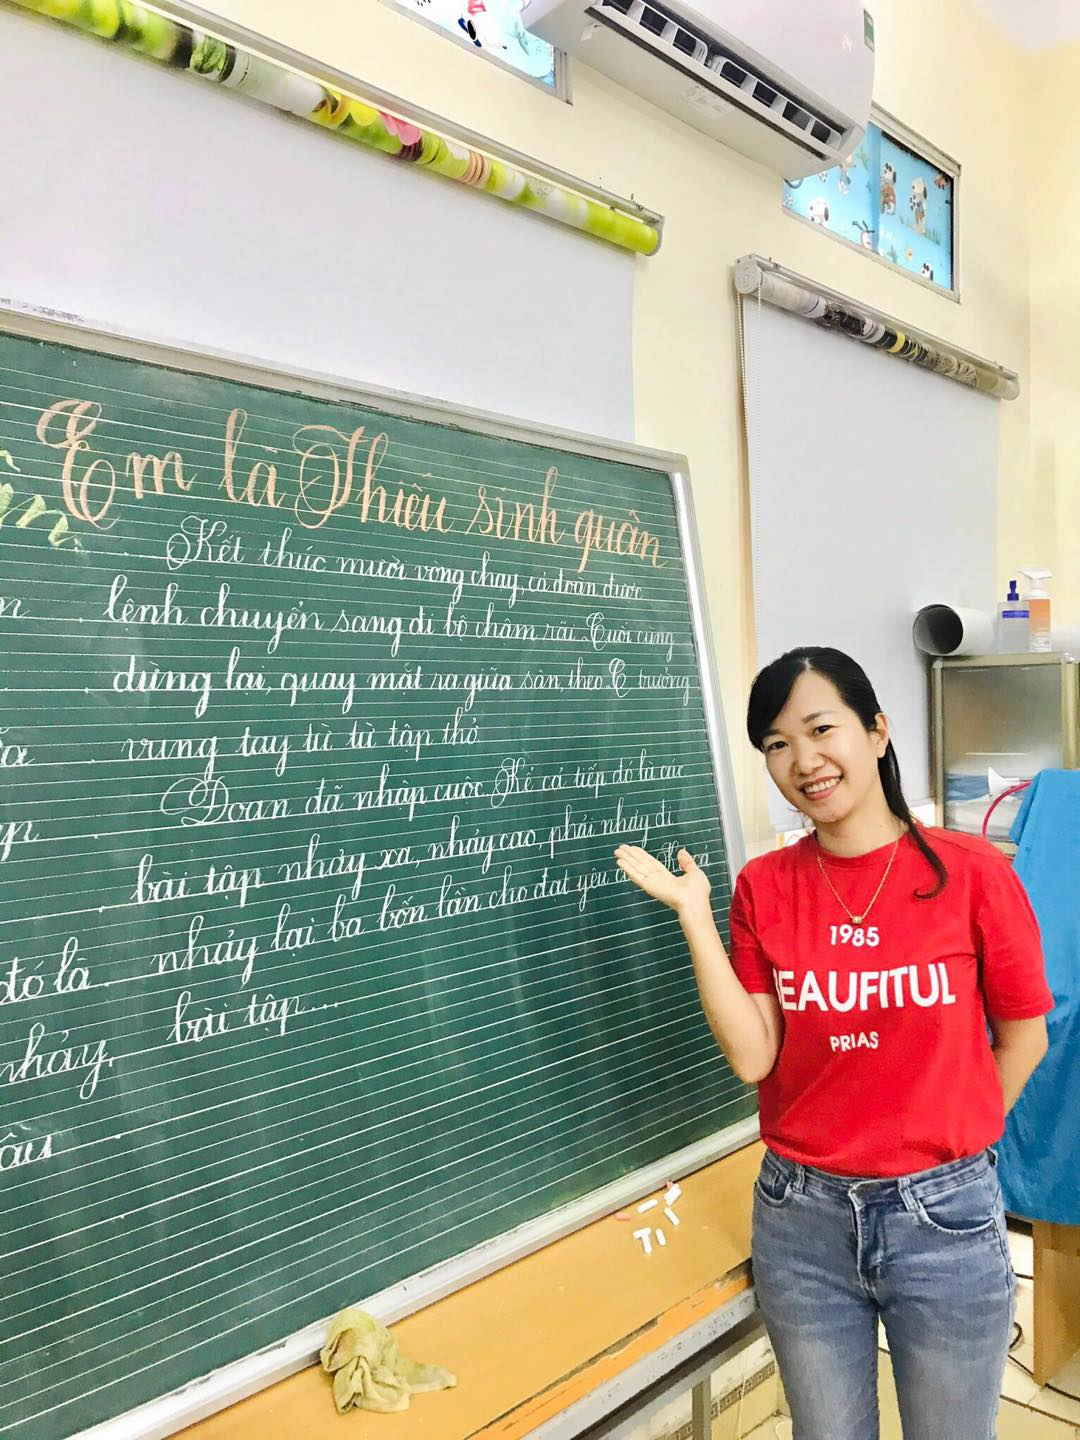 Em là Thiếu sinh quân
Kết thúc mười vòng chạy, cả đoàn được
lệnh chuyển sang đi bộ chậm rãi. Cuối cùng
dừng lại, quay mặt ra giữa sân, theo C trưởng
vung tay từ từ tập thở
Đoan đã nhập cuộc. Kế cả tiếp đó là các
bài tập nhảy xa, nhảy cao, phải nhảy đi
nhảy lại ba bốn lần cho đạt yêu
bài tập...
đó là
nhảy,
1985
EAUFITUL
PRIAS